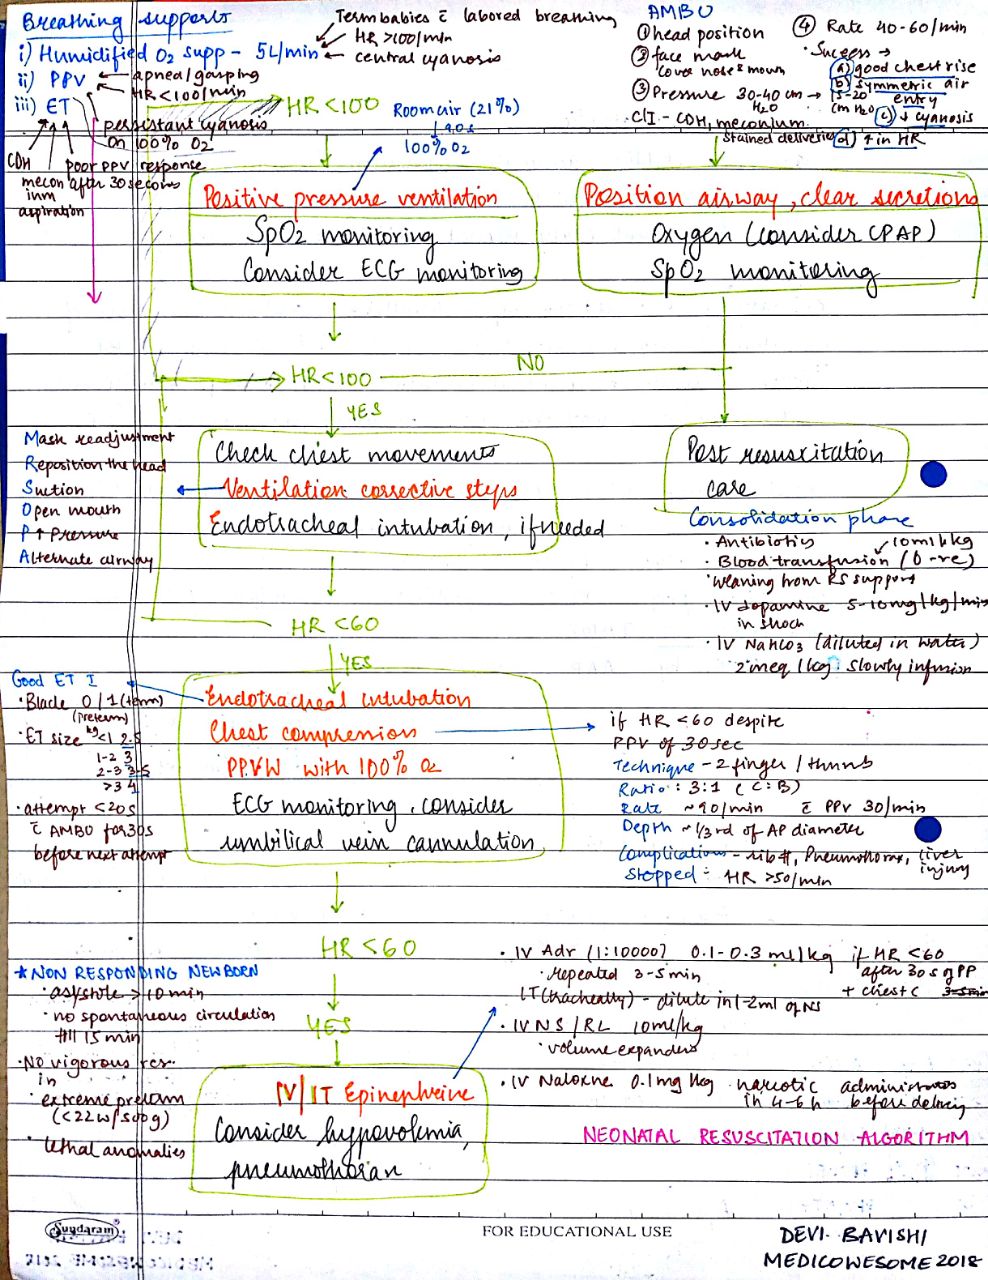 Breathing supports
i) Humidified O2 supp - 5L/min
Term babies c̄ labored breathing
HR >100/min
central cyanosis
ii) PPV
apnea/gasping
HR <100/min
iii) ET
persistant cyanosis
on 100% O2
CDH
poor PPV response
after 30 seconds
meconium
aspiration
AMBU
① head position
② face mask
cover nose & mouth
③ Pressure 30-40 cm H2O
15-20 cm H2O
C/I - CDH, meconium
stained deliveries
④ Rate 40-60/min
Success →
a) good chest rise
b) symmetric air
entry
c) ↓ cyanosis
d) ↑ in HR
HR <100
Room air (21%)
90s
100% O2
Positive pressure ventilation
SpO2 monitoring
Consider ECG monitoring
Position airway, clear secretions
Oxygen (consider CPAP)
SpO2 monitoring
HR <100
NO
YES
Mask readjustment
Reposition the head
Suction
Open mouth
P ↑ Pressure
Alternate airway
Check chest movements
Ventilation corrective steps
Endotracheal intubation, if needed
Post resuscitation
care
Consolidation phase
· Antibiotics
10ml/kg
· Blood transfusion (O -ve)
· Weaning from RS support
· IV dopamine 5-10mg/kg/min
in shock
· IV NaHCO3 (diluted in water)
2meq/kg : slowly infusion
HR <60
YES
Good ET I
· Blade 0/1 (term)
(preterm)
· ET size kg <1 2.5
1-2 3
2-3 3.5
>3 4
· attempt <20s
c̄ AMBO for 30s
before next attempt
Endotracheal intubation
Chest compression
PPVW with 100% O2
ECG monitoring, consider
umbilical vein cannulation
if HR <60 despite
PPV of 30sec
Technique - 2 finger / thumb
Ratio : 3:1 (C:B)
Rate ~90/min c̄ PPV 30/min
Depth ~1/3rd of AP diameter
Complications - rib #, Pneumothorax, liver
injury
Stopped : HR >50/min
HR <60
YES
* NON RESPONDING NEWBORN
· asystole >10min
· no spontaneous circulation
till 15 min
· No vigorous res.
in
· extreme preterm
(<22w/500g)
· lethal anomalies
· IV Adr (1:10000) 0.1-0.3 ml/kg if HR <60
after 30s of PP
+ chest C
· repeated 3-5min
IT (tracheally) - dilute in 1-2ml of NS
· IV NS/RL 10ml/kg
· volume expanders
· IV Naloxne 0.1mg/kg narcotic administrates
in 4-6h before delivery
IV/IT Epinephrine
Consider hypovolemia,
pneumothorax
NEONATAL RESUSCITATION ALGORITHM
Sundaram
FOR EDUCATIONAL USE
DEVI BAVISHI
MEDICOWESOME 2018